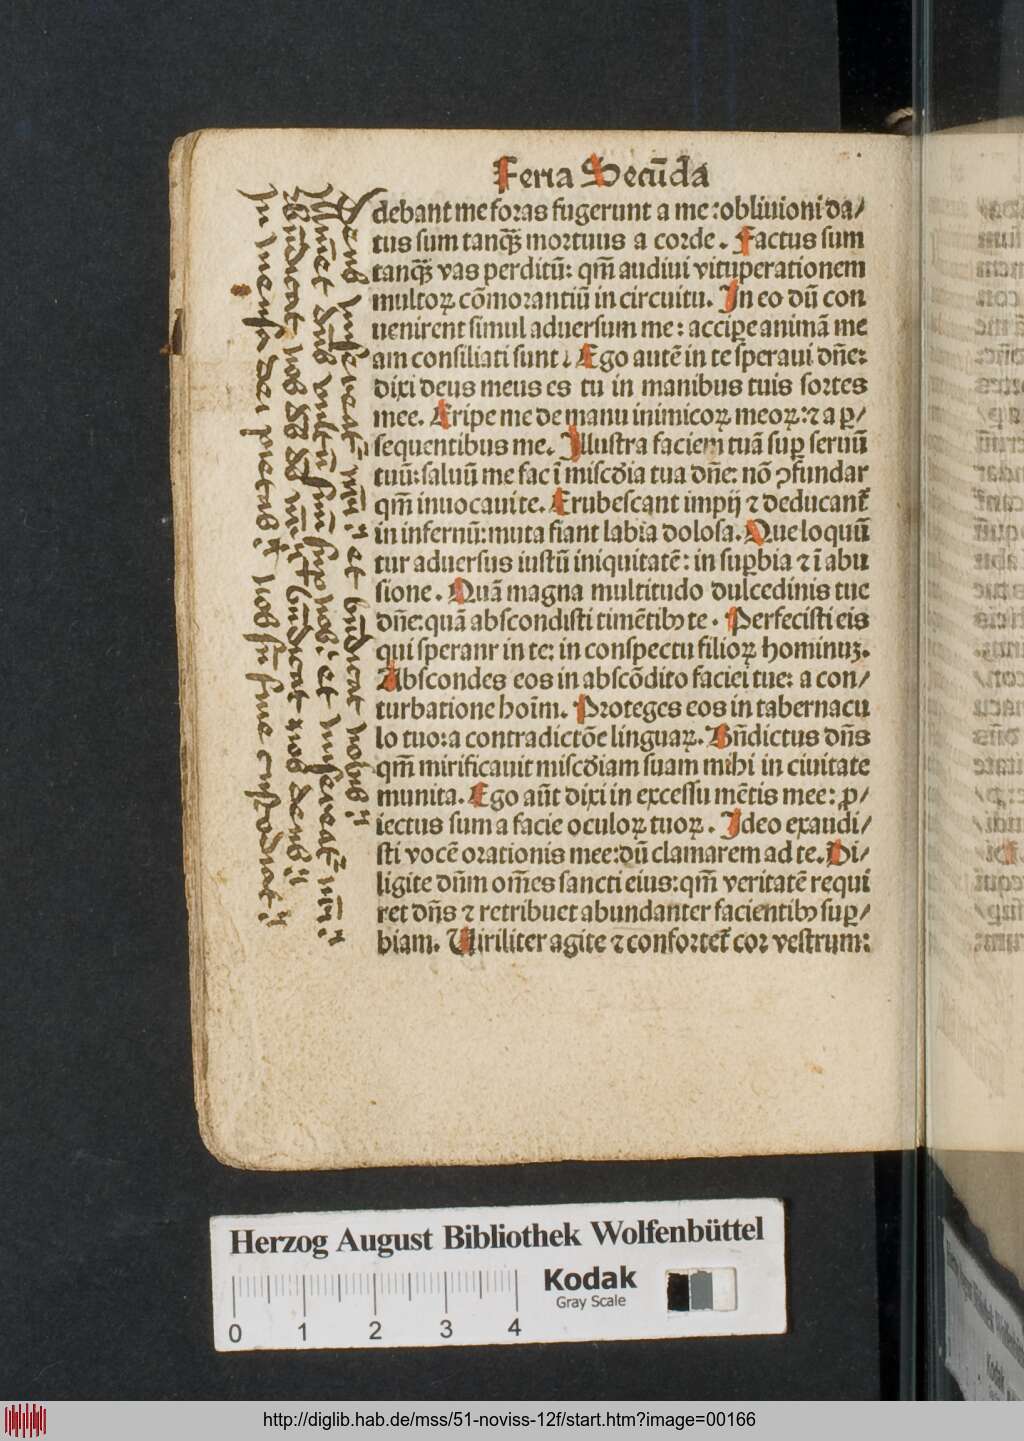 Feria Secūda
debant me foras fugerunt a me: obliuioni da/
tus sum tanqꝫ mortuus a corde. Factus sum
tanqꝫ vas perditū: qm̄ audiui vituperationem
multoꝝ cōmorantiū in circuitu. In eo dū con
uenirent simul aduersum me: accipe animā me
am consiliati sunt. Ego autē in te speraui dn̄e:
dixi deus meus es tu in manibus tuis sortes
mee. Eripe me de manu inimicoꝝ meoꝝ: ⁊ a ꝑ/
sequentibus me. Illustra faciem tuā suꝑ seruū
tuū: saluū me fac ī miscdia tua dn̄e: nō ꝯfundar
qm̄ inuocaui te. Erubescant impij ⁊ deducant̄
in infernū: muta fiant labia dolosa. Que loquū
tur aduersus iustū iniquitatē: in suꝑbia ⁊ ī abu
sione. Quā magna multitudo dulcedinis tue
dn̄e: quā abscondisti timētibꝫ te. Perfecisti eis
qui sperant in te: in conspectu filioꝝ hominuꝫ.
Abscondes eos in abscōdito faciei tue: a con/
turbatione hoīm. Proteges eos in tabernacu
lo tuo: a contradictōe linguaꝝ. Bn̄dictus dn̄s
qm̄ mirificauit miscdiam suam mihi in ciuitate
munita. Ego aūt dixi in excessu mētis mee: ꝓ/
iectus sum a facie oculoꝝ tuoꝝ. Ideo exaudi/
sti vocē orationis mee: dū clamarem ad te. Di/
ligite dn̄m om̄es sancti eius: qm̄ veritatē requi
ret dn̄s ⁊ retribuet abundanter facientibꝫ suꝑ/
biam. Uiriliter agite ⁊ confortet̄ cor vestrum:
Deus misereat̄ nr̄i et bn̄dicat nobis
et misereat̄ nr̄i
bn̄dicat nos deus
custodiat
Herzog August Bibliothek Wolfenbüttel
Kodak
Gray Scale
0 1 2 3 4
http://diglib.hab.de/mss/51-noviss-12f/start.htm?image=00166